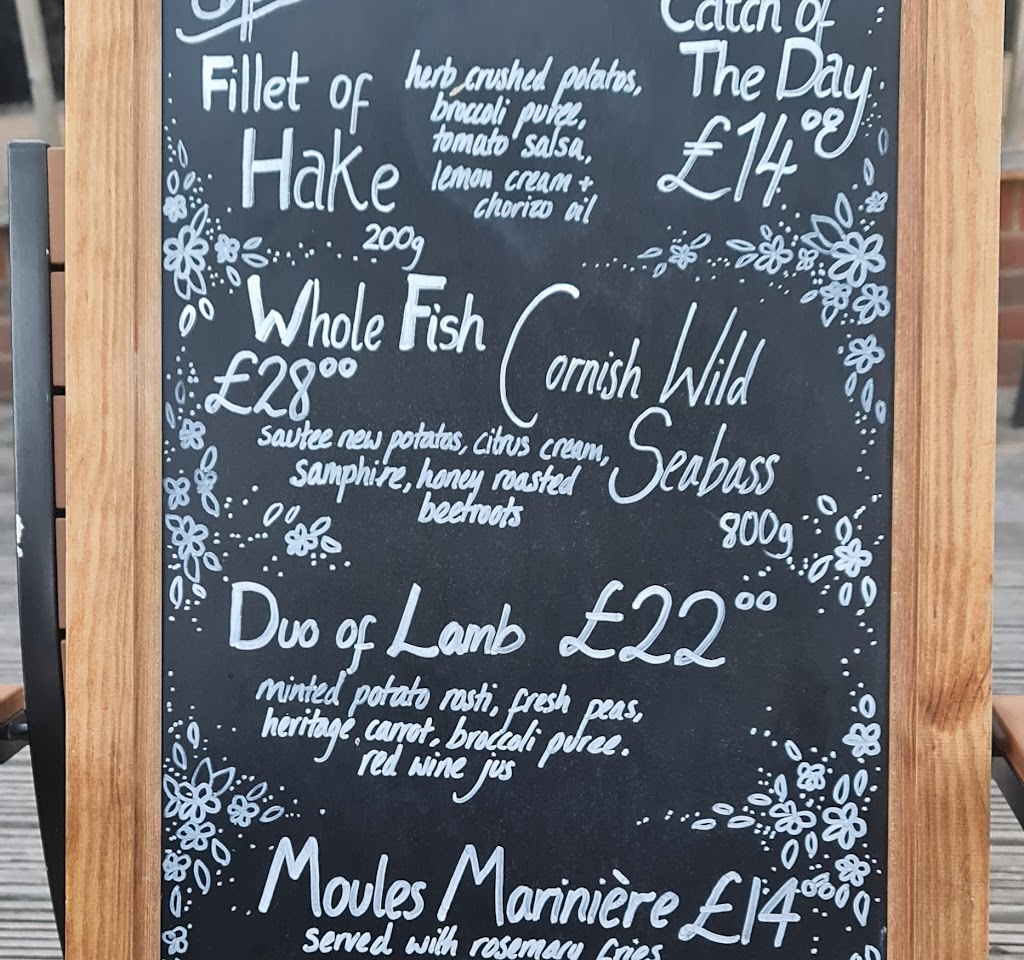 Catch of
The Day
£14.00
Fillet of
Hake
200g
herb crushed potatos,
broccoli puree,
tomato salsa,
lemon cream +
chorizo oil
Whole Fish
£28.00
Cornish Wild
Seabass
800g
sautee new potatos, citrus cream,
samphire, honey roasted
beetroots
Duo of Lamb £22.00
minted potato rosti, fresh peas,
heritage carrot, broccoli puree.
red wine jus
Moules Marinière £14.00
served with rosemary fries